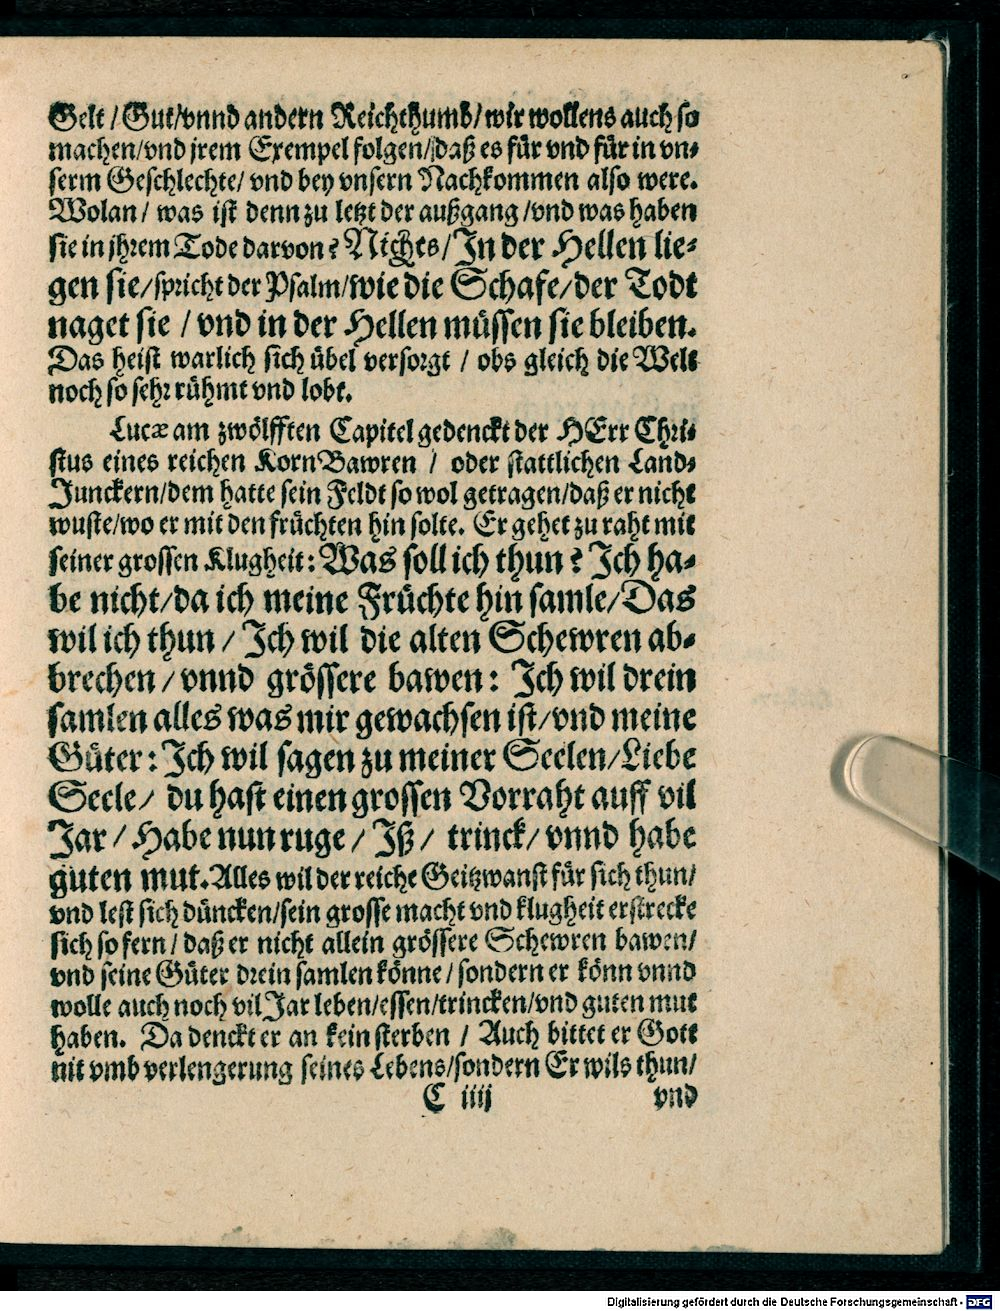 Gelt / Gut/vnnd andern Reichthumb/wir wollens auch so
machen/vnd jrem Exempel folgen/daß es für vnd für in vn⸗
serm Geschlechte/ vnd bey vnsern Nachkommen also were.
Wolan / was ist denn zu letzt der außgang /vnd was haben
sie in jhrem Tode darvon? Nichts/ In der Hellen lie⸗
gen sie/spricht der Psalm/wie die Schafe/der Todt
naget sie / vnd in der Hellen müssen sie bleiben.
Das heist warlich sich übel versorgt / obs gleich die Welt
noch so sehr rühmt vnd lobt.
Lucæ am zwölfften Capitel gedenckt der HErr Chri⸗
stus eines reichen KornBawren / oder stattlichen Land⸗
Junckern/dem hatte sein Feldt so wol getragen/daß er nicht
wuste/wo er mit den früchten hin solte. Er gehet zu raht mit
seiner grossen Klugheit: Was soll ich thun? Ich ha⸗
be nicht/da ich meine Früchte hin samle/Das
wil ich thun / Ich wil die alten Schewren ab⸗
brechen / vnnd grössere bawen: Ich wil drein
samlen alles was mir gewachsen ist/vnd meine
Güter: Ich wil sagen zu meiner Seelen/Liebe
Seele/ du hast einen grossen Vorraht auff vil
Jar / Habe nun ruge / Iß / trinck/ vnnd habe
guten mut. Alles wil der reiche Geitzwanst für sich thun/
vnd lest sich düncken/sein grosse macht vnd klugheit erstrecke
sich so fern / daß er nicht allein grössere Schewren bawen/
vnd seine Güter drein samlen könne / sondern er könn vnnd
wolle auch noch vil Jar leben/essen/trincken/vnd guten mut
haben. Da denckt er an kein sterben / Auch bittet er Gott
nit vmb verlengerung seines Lebens/sondern Er wils thun/
C iiij vnd
Digitalisierung gefördert durch die Deutsche Forschungsgemeinschaft - DFG